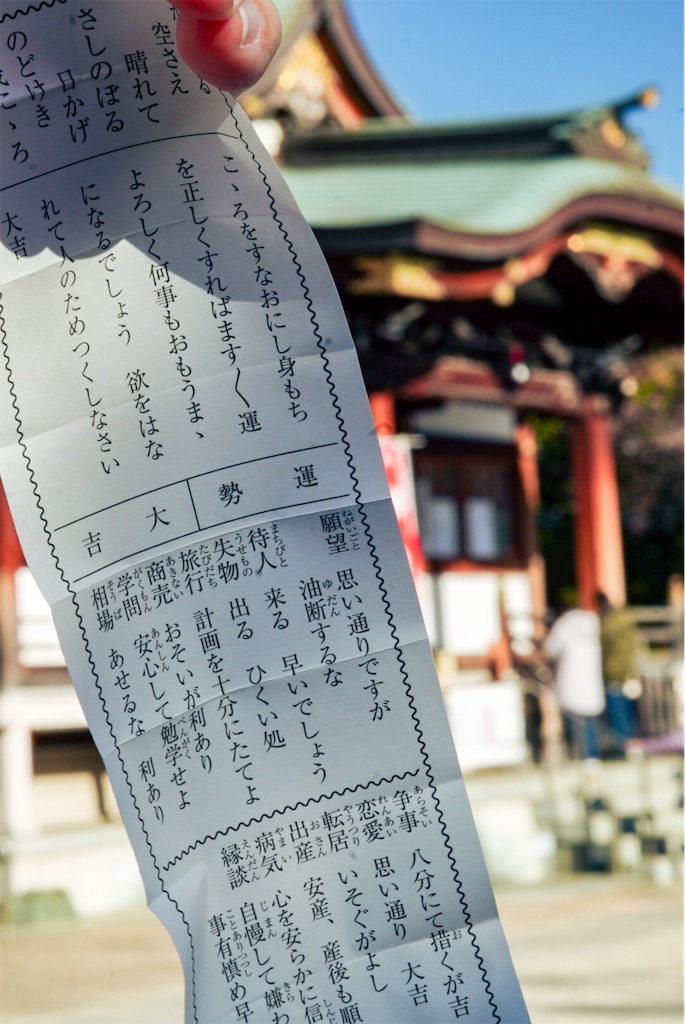 空さえ
晴れて
さしのぼる
日かげ
のどけき
こゝろをすなおにし身もち
を正しくすればます〱運
よろしく何事もおもうまゝ
になるでしょう　欲をはな
れて人のためつくしなさい
大吉
運勢
大吉
願望　思い通りですが
油断するな
待人　来る　早いでしょう
失物　出る　ひくい処
旅行　計画を十分にたてよ
商売　おそいが利あり
学問　安心して勉学せよ
相場　あせるな　利あり
争事　八分にて措くが吉
恋愛　思い通り　大吉
転居　いそぐがよし
出産　安産、産後も順
病気　心を安らかに信
縁談　自慢して嫌わ
事有慎め早